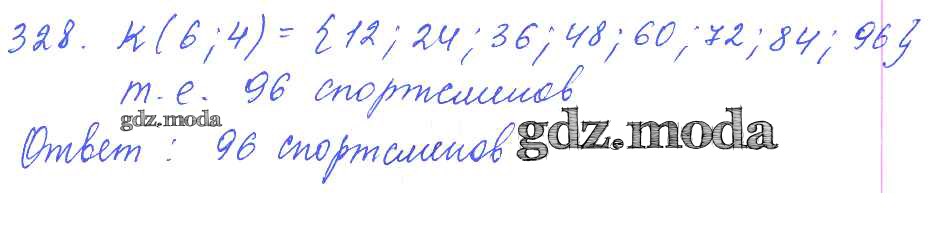 328. К(6;4)={12;24;36;48;60;72;84;96}
т.е. 96 спортсменов
gdz.moda
Ответ: 96 спортсменов
gdz.moda